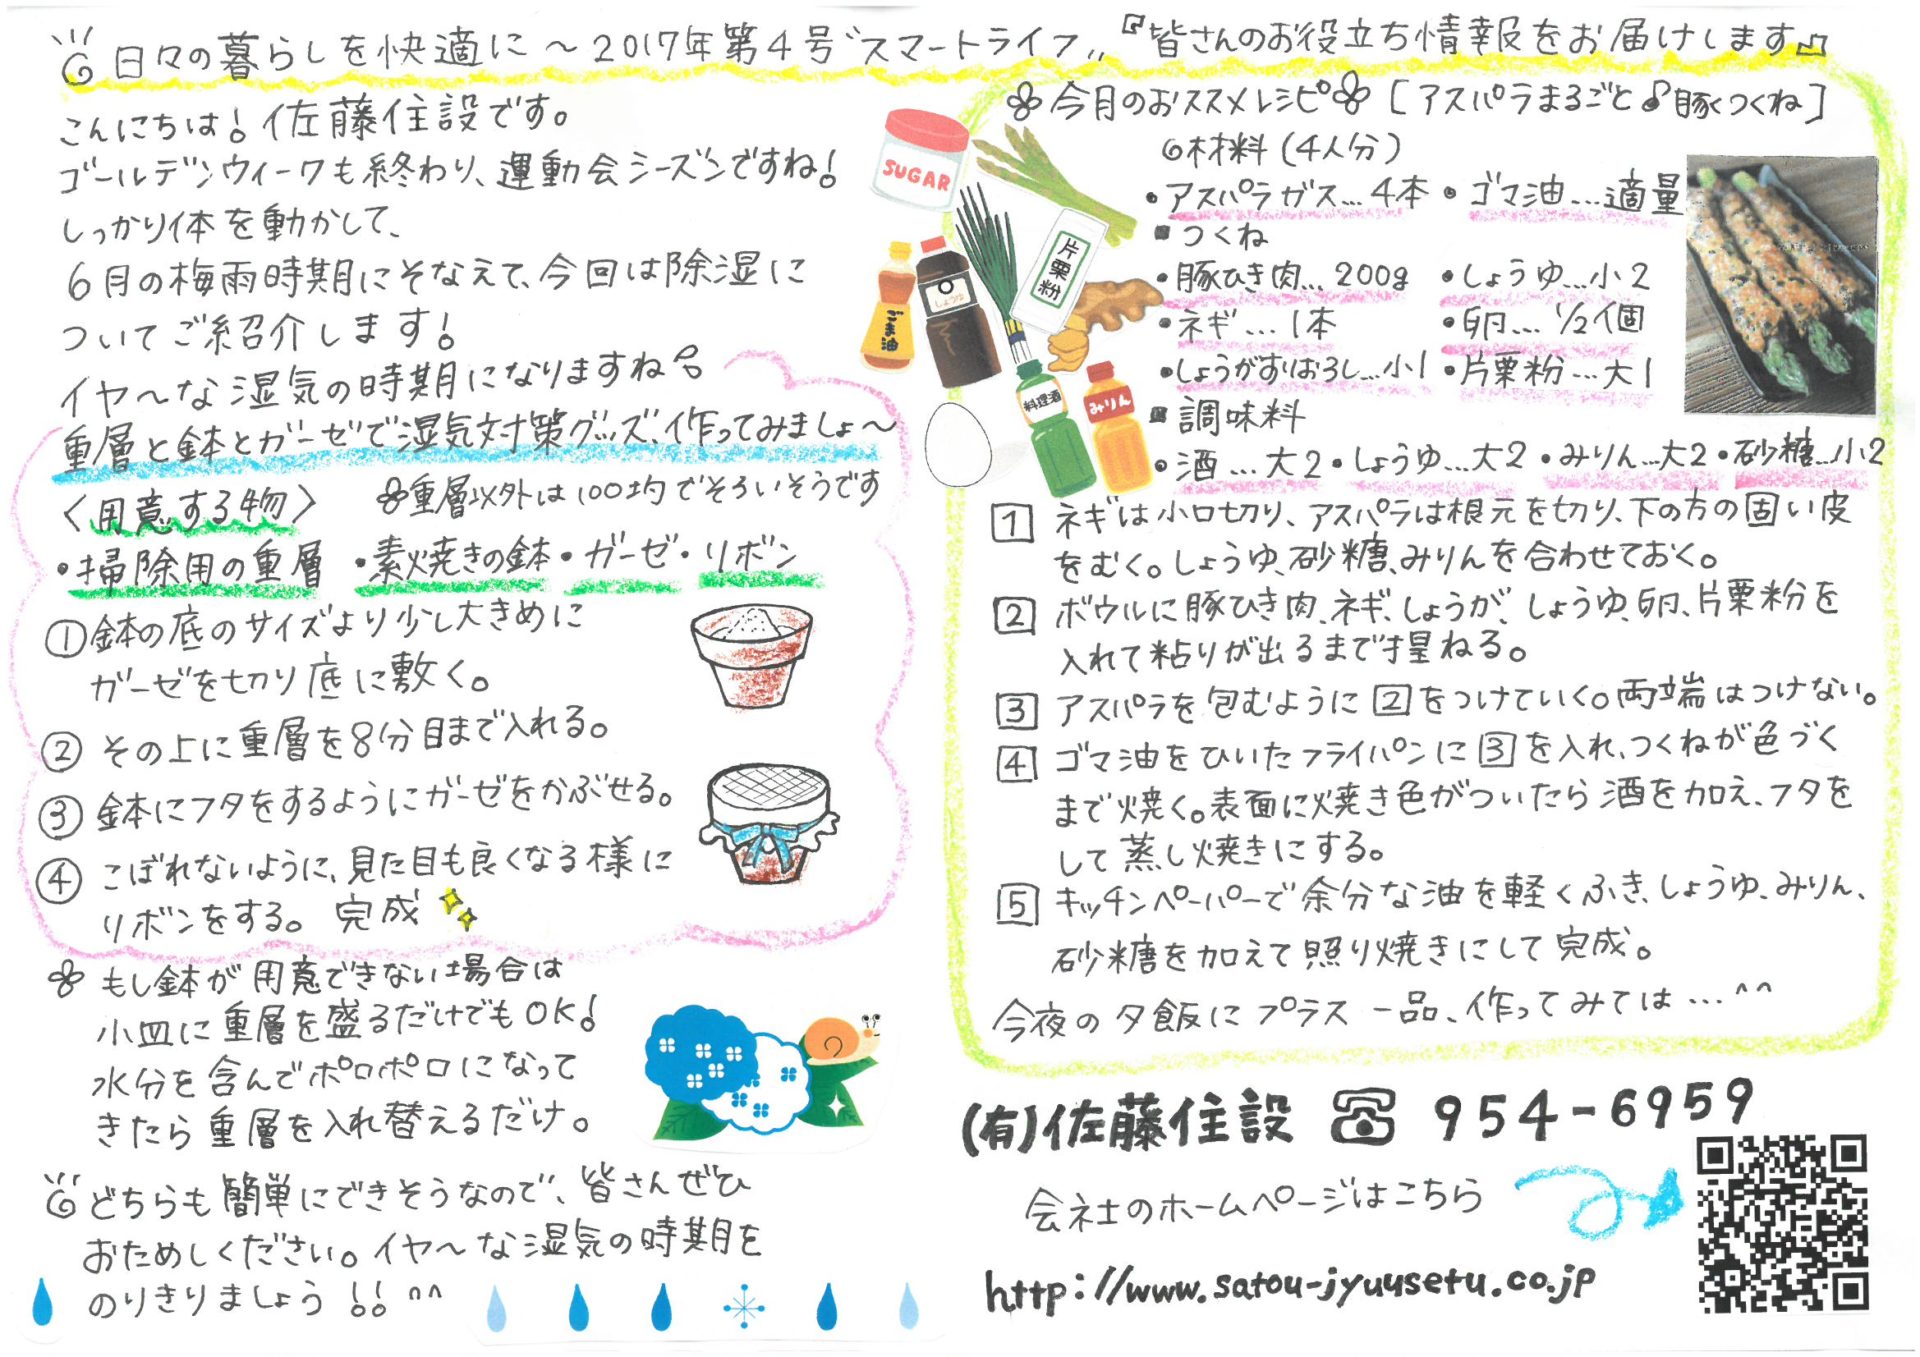 日々の暮らしを快適に～2017年第4号〝スマートライフ〟『皆さんのお役立ち情報をお届けします』
こんにちは!佐藤住設です。
ゴールデンウィークも終わり、運動会シーズンですね!
しっかり体を動かして、
6月の梅雨時期にそなえて、今回は除湿に
ついてご紹介します!
イヤ～な湿気の時期になりますね
重層と鉢とガーゼで湿気対策グッズ、作ってみましょ～
〈用意する物〉 重層以外は100均でそろいそうです
・掃除用の重層 ・素焼きの鉢・ガーゼ・リボン
① 鉢の底のサイズより少し大きめに
ガーゼを切り底に敷く。
② その上に重層を8分目まで入れる。
③ 鉢にフタをするようにガーゼをかぶせる。
④ こぼれないように、見た目も良くなる様に
リボンをする。 完成
もし鉢が用意できない場合は
小皿に重層を盛るだけでもOK!
水分を含んでポロポロになって
きたら重層を入れ替えるだけ。
どちらも簡単にできそうなので、皆さんぜひ
おためしください。イヤ～な湿気の時期を
のりきりましょう!! ^^
SUGAR
片栗粉
しょうゆ
ごま油
料理酒
みりん
今月のおススメレシピ [アスパラまるごと♪豚つくね]
◎材料(4人分)
・アスパラガス…4本 ・ゴマ油…適量
■つくね
・豚ひき肉…200g ・しょうゆ…小2
・ネギ…1本 ・卵…1/2個
・しょうがすりおろし…小1 ・片栗粉…大1
■調味料
・酒…大2 ・しょうゆ…大2 ・みりん…大2 ・砂糖…小2
1 ネギは小口切り、アスパラは根元を切り、下の方の固い皮
をむく。しょうゆ、砂糖、みりんを合わせておく。
2 ボウルに豚ひき肉、ネギ、しょうが、しょうゆ、卵、片栗粉を
入れて粘りが出るまで捏ねる。
3 アスパラを包むように2をつけていく。両端はつけない。
4 ゴマ油をひいたフライパンに3を入れ、つくねが色づく
まで焼く。表面に焼き色がついたら酒を加え、フタを
して蒸し焼きにする。
5 キッチンペーパーで余分な油を軽くふき、しょうゆ、みりん、
砂糖を加えて照り焼きにして完成。
今夜の夕飯にプラス一品、作ってみては…^^
(有)佐藤住設 ☎ 954-6959
会社のホームページはこちら
http://www.satou-jyuusetu.co.jp